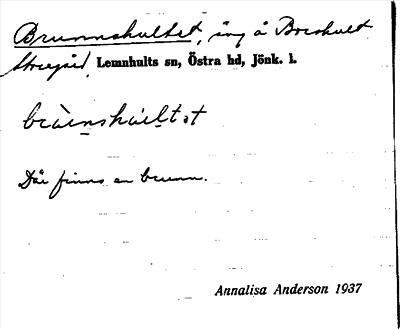 Brunnshultet, äng å Boeshult
Storegård, Lemnhults sn, Östra hd, Jönk. l.
Där finns en brunn.
Annalisa Anderson 1937